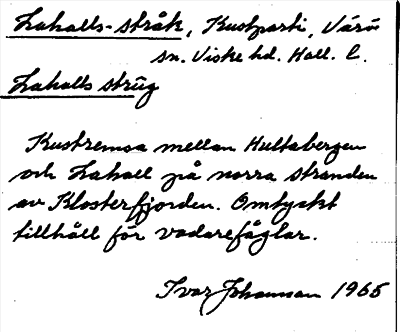 Lahalls-stråk, Kustparti, Värö
sn. Viske hd. Hall. l.
Lahalls strüg
Kustremsa mellan Hultabergen
och Lahall på norra stranden
av Klosterfjorden. Omtyckt
tillhåll för vadarefåglar.
Ivar Johansson 1965